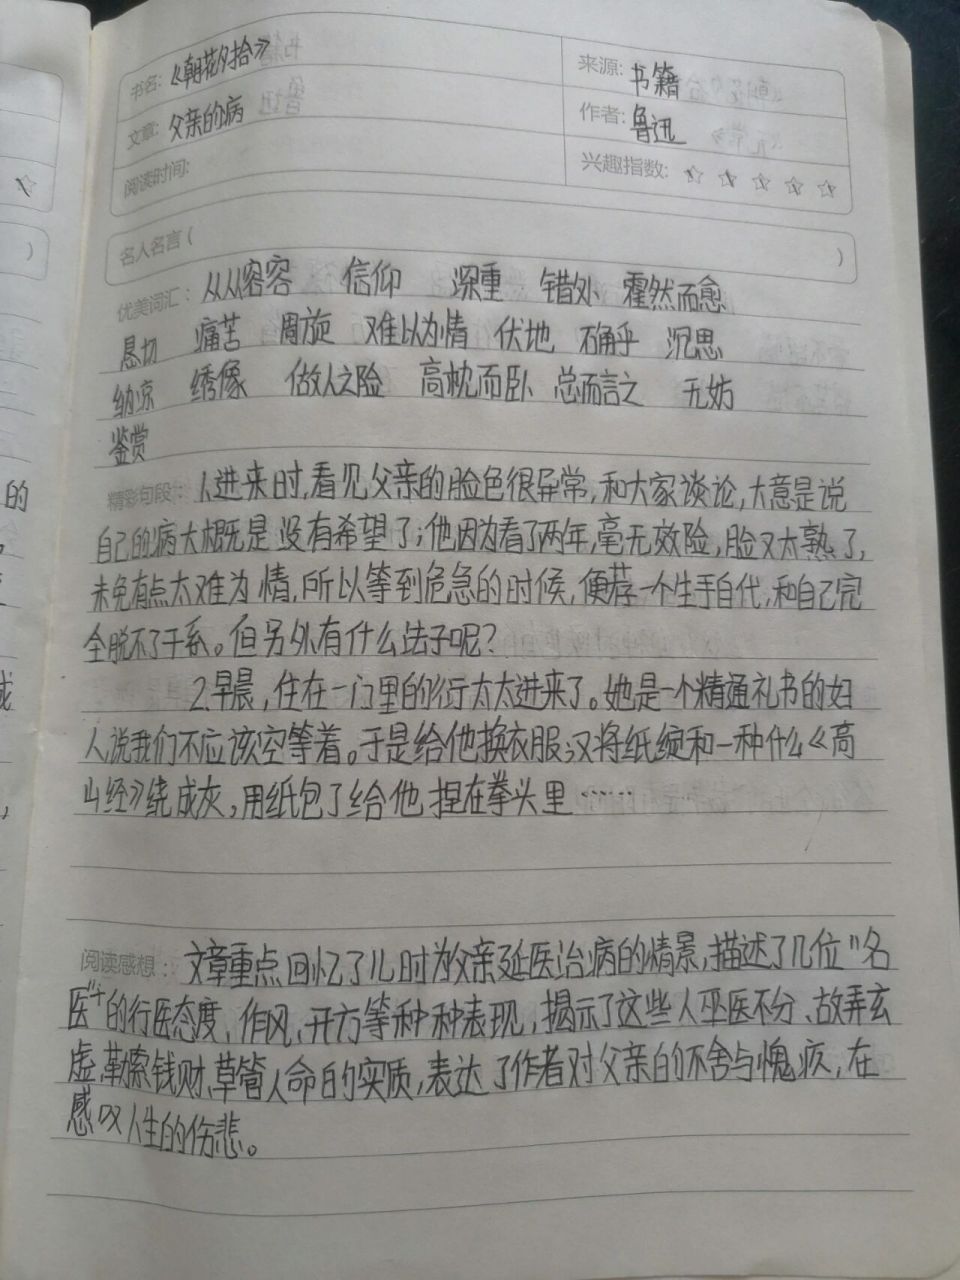 书名:《朝花夕拾》 来源:书籍
文章:父亲的病 作者:鲁迅
阅读时间: 兴趣指数:☆☆☆☆☆
名人名言( )
优美词汇:从从容容 信仰 深重 错处 霍然而愈
恳切 痛苦 周旋 难以为情 伏地 确乎 沉思
纳凉 绣像 做人之险 高枕而卧 总而言之 无妨
鉴赏
精彩句段:人进来时,看见父亲的脸色很异常,和大家谈论,大意是说
自己的病大概是没有希望了;他因为看了两年,毫无效险,脸又太熟了,
未免有点太难为情,所以等到危急的时候,便荐一个生手自代,和自己完
全脱不了干系。但另外有什么法子呢?
2.早晨,住在一门里的衍太太进来了。她是一个精通礼书的妇
人,说我们不应该空等着。于是给他换衣服;又将纸锭和一种什么《高
山经》烧成灰,用纸包了给他捏在拳头里……
阅读感想:文章重点回忆了儿时为父亲延医治病的情景,描述了几位"名
医"的行医态度、作风、开方等种种表现,揭示了这些人巫医不分、故弄玄
虚,勒索钱财,草管人命的实质,表达了作者对父亲的不舍与愧疚,在
感叹人生的伤悲。
的
,
成
,
☆
)